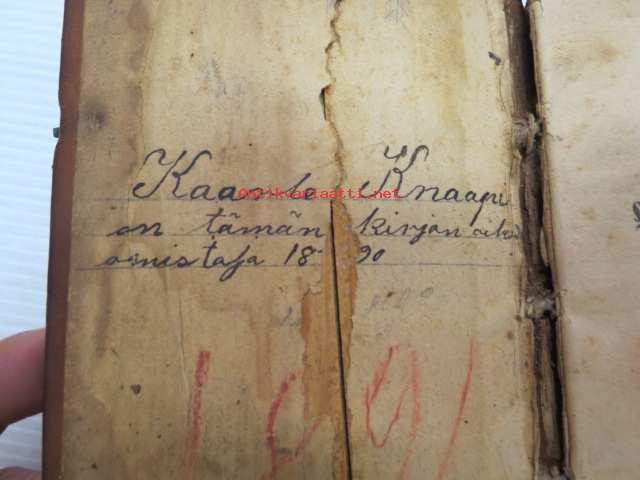 Kaarle Knaapi
on tämän kirjan oikea
omistaja 18 90
antikvariaatti.net
1891